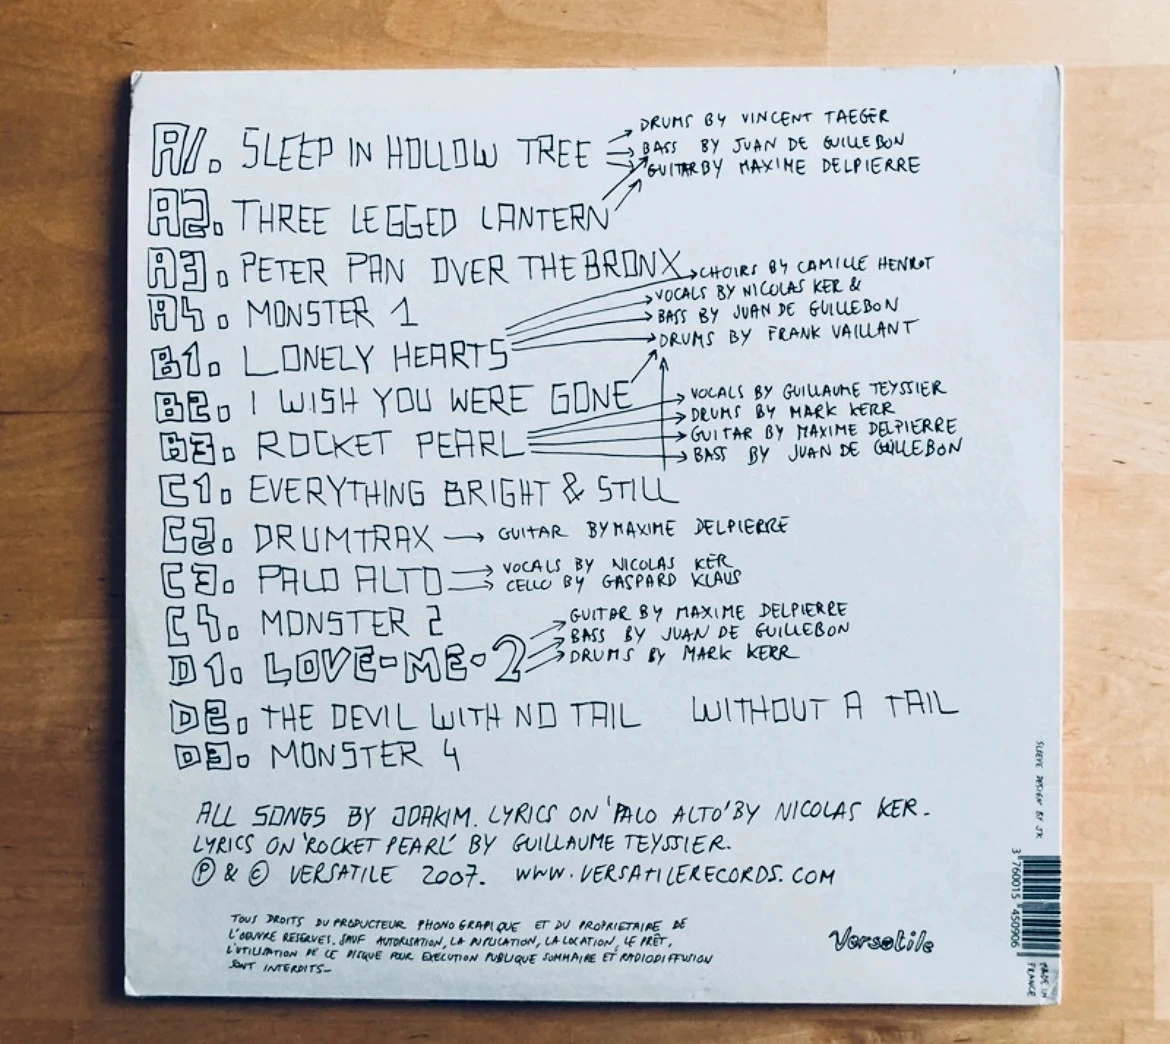 A1. SLEEP IN HOLLOW TREE
DRUMS BY VINCENT TAEGER
BASS BY JUAN DE GUILLEBON
GUITAR BY MAXIME DELPIERRE
A2. THREE LEGGED LANTERN
A3. PETER PAN OVER THE BRONX
A4. MONSTER 1
B1. LONELY HEARTS
CHOIRS BY CAMILLE HENROT
VOCALS BY NICOLAS KER &
BASS BY JUAN DE GUILLEBON
DRUMS BY FRANK VAILLANT
B2. I WISH YOU WERE GONE
B3. ROCKET PEARL
VOCALS BY GUILLAUME TEYSSIER
DRUMS BY MARK KERR
GUITAR BY MAXIME DELPIERRE
BASS BY JUAN DE GUILLEBON
C1. EVERYTHING BRIGHT & STILL
C2. DRUMTRAX → GUITAR BY MAXIME DELPIERRE
C3. PALO ALTO
VOCALS BY NICOLAS KER
CELLO BY GASPARD KLAUS
C4. MONSTER 2
D1. LOVE-ME-2
GUITAR BY MAXIME DELPIERRE
BASS BY JUAN DE GUILLEBON
DRUMS BY MARK KERR
D2. THE DEVIL WITH NO TAIL WITHOUT A TAIL
D3. MONSTER 4
ALL SONGS BY JOAKIM. LYRICS ON 'PALO ALTO' BY NICOLAS KER.
LYRICS ON 'ROCKET PEARL' BY GUILLAUME TEYSSIER.
℗ & © VERSATILE 2007. WWW.VERSATILERECORDS.COM
TOUS DROITS DU PRODUCTEUR PHONOGRAPIQUE ET DU PROPRIETAIRE DE
L'OEUVRE RESERVES. SAUF AUTORISATION, LA DUPLICATION, LA LOCATION, LE PRÊT,
L'UTILISATION DE CE DISQUE POUR EXECUTION PUBLIQUE SOMMAIRE ET RADIODIFFUSION
SONT INTERDITS_
Versatile
SLEEVE DESIGN BY JK
3 760015 450906
MADE IN
FRANCE